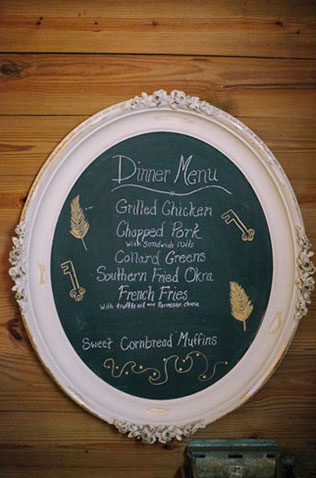 Dinner Menu
Grilled Chicken
Chopped Pork
with sandwich rolls
Collard Greens
Southern Fried Okra
French Fries
With truffle oil and Parmesan cheese
Sweet Cornbread Muffins